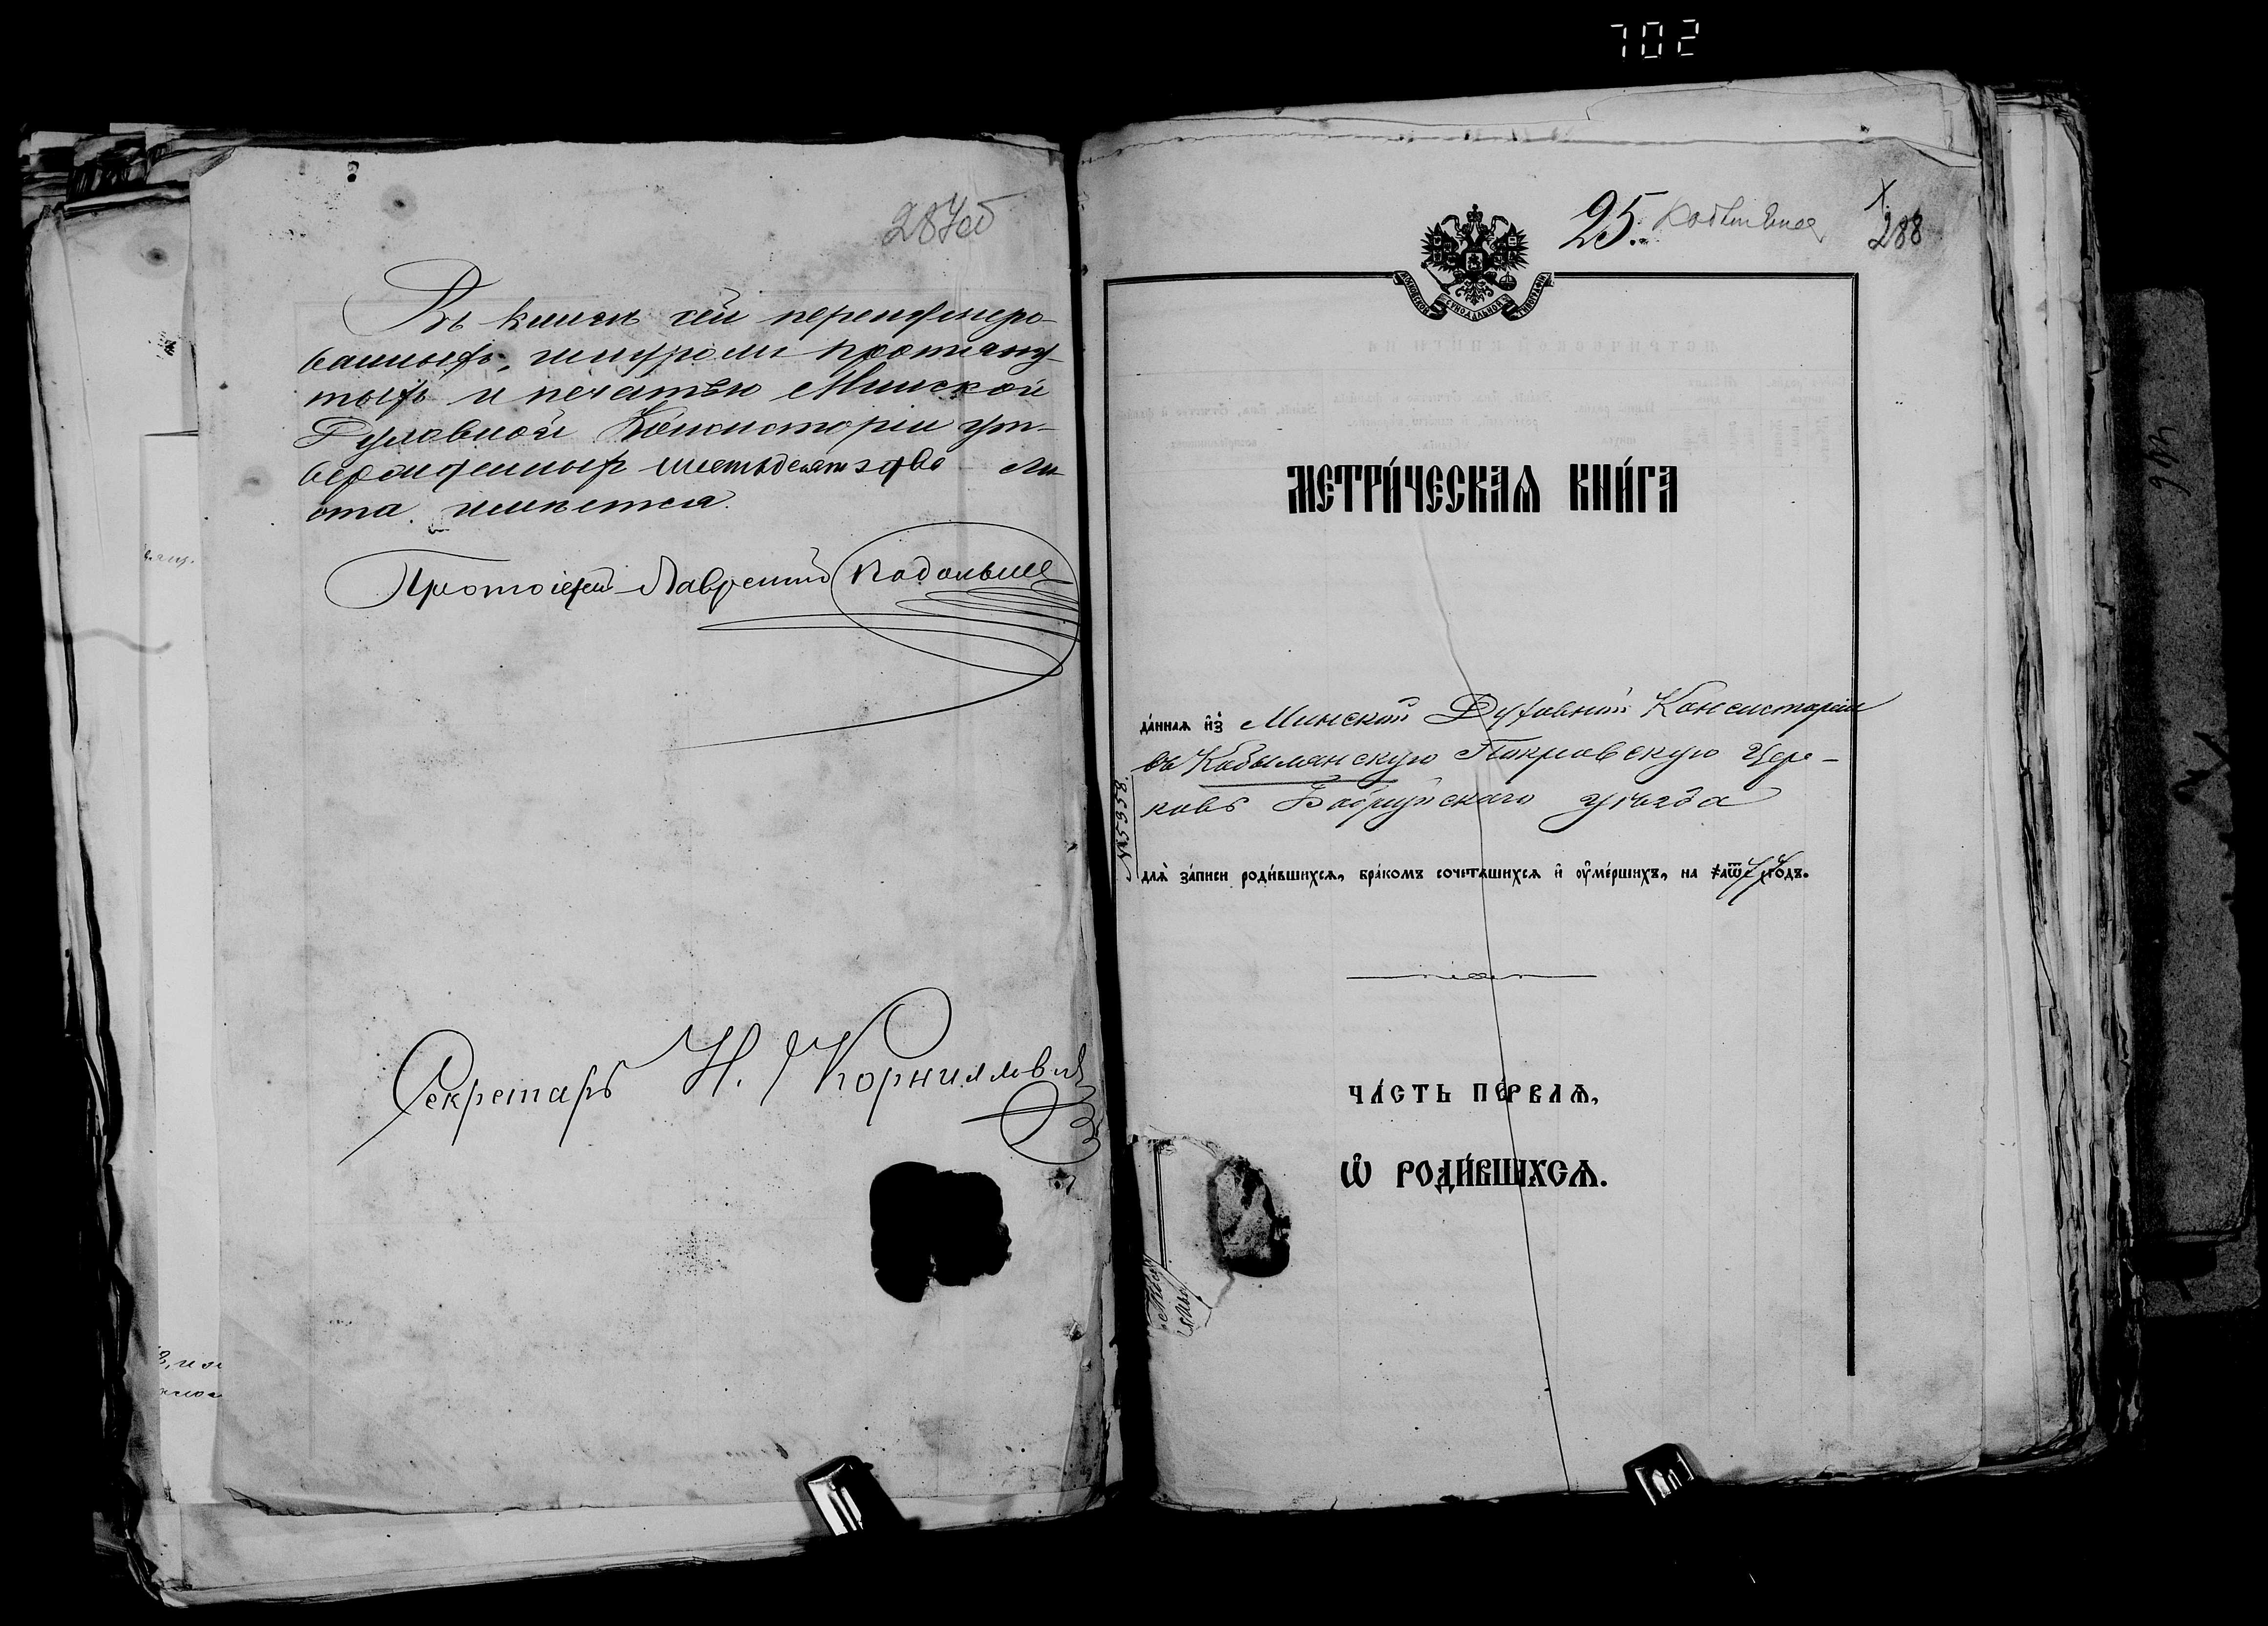 702
287об
Въ книгѣ сей перенумеро-
ванныхъ, шнуромъ протяну-
тыхъ и печатью Минской
Духовной Консисторіи ут-
вержденныхъ шестьдесятъ два ли-
ста имѣется.
Протоіерей Лаврентій Подольше
Секретарь Н. Корниллович
25. 288
МОСКОВСКОЙ СѴНОДАЛЬНОЙ ТИПОГРАФІИ
МЕТРИ́ЧЕСКАѦ КНИ́ГА
да́ннаѧ и҆зъ Минской Духовной Консисторіи
въ Кобылянскую Покровскую Цер-
ковь Бобруйскаго уѣзда
№ 5958.
длѧ̀ за́писи роди́вшихсѧ, бра́комъ сочета́вшихсѧ и҆ ᲂу҆ме́ршихъ, на го́дъ.
ЧА́СТЬ ПЕ́РВАѦ,
Ѽ РОДИ́ВШИХСѦ.